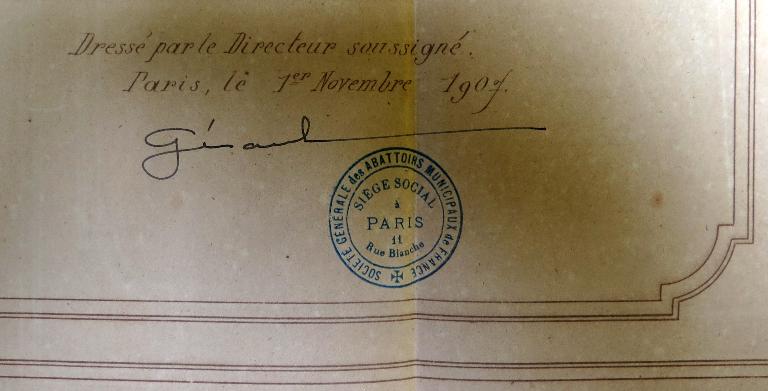 Dressé par le Directeur soussigné.
Paris, le 1er Novembre 1907.
SOCIÉTÉ GÉNÉRALE des ABATTOIRS MUNICIPAUX de FRANCE
SIÈGE SOCIAL
à
PARIS
11
Rue Blanche